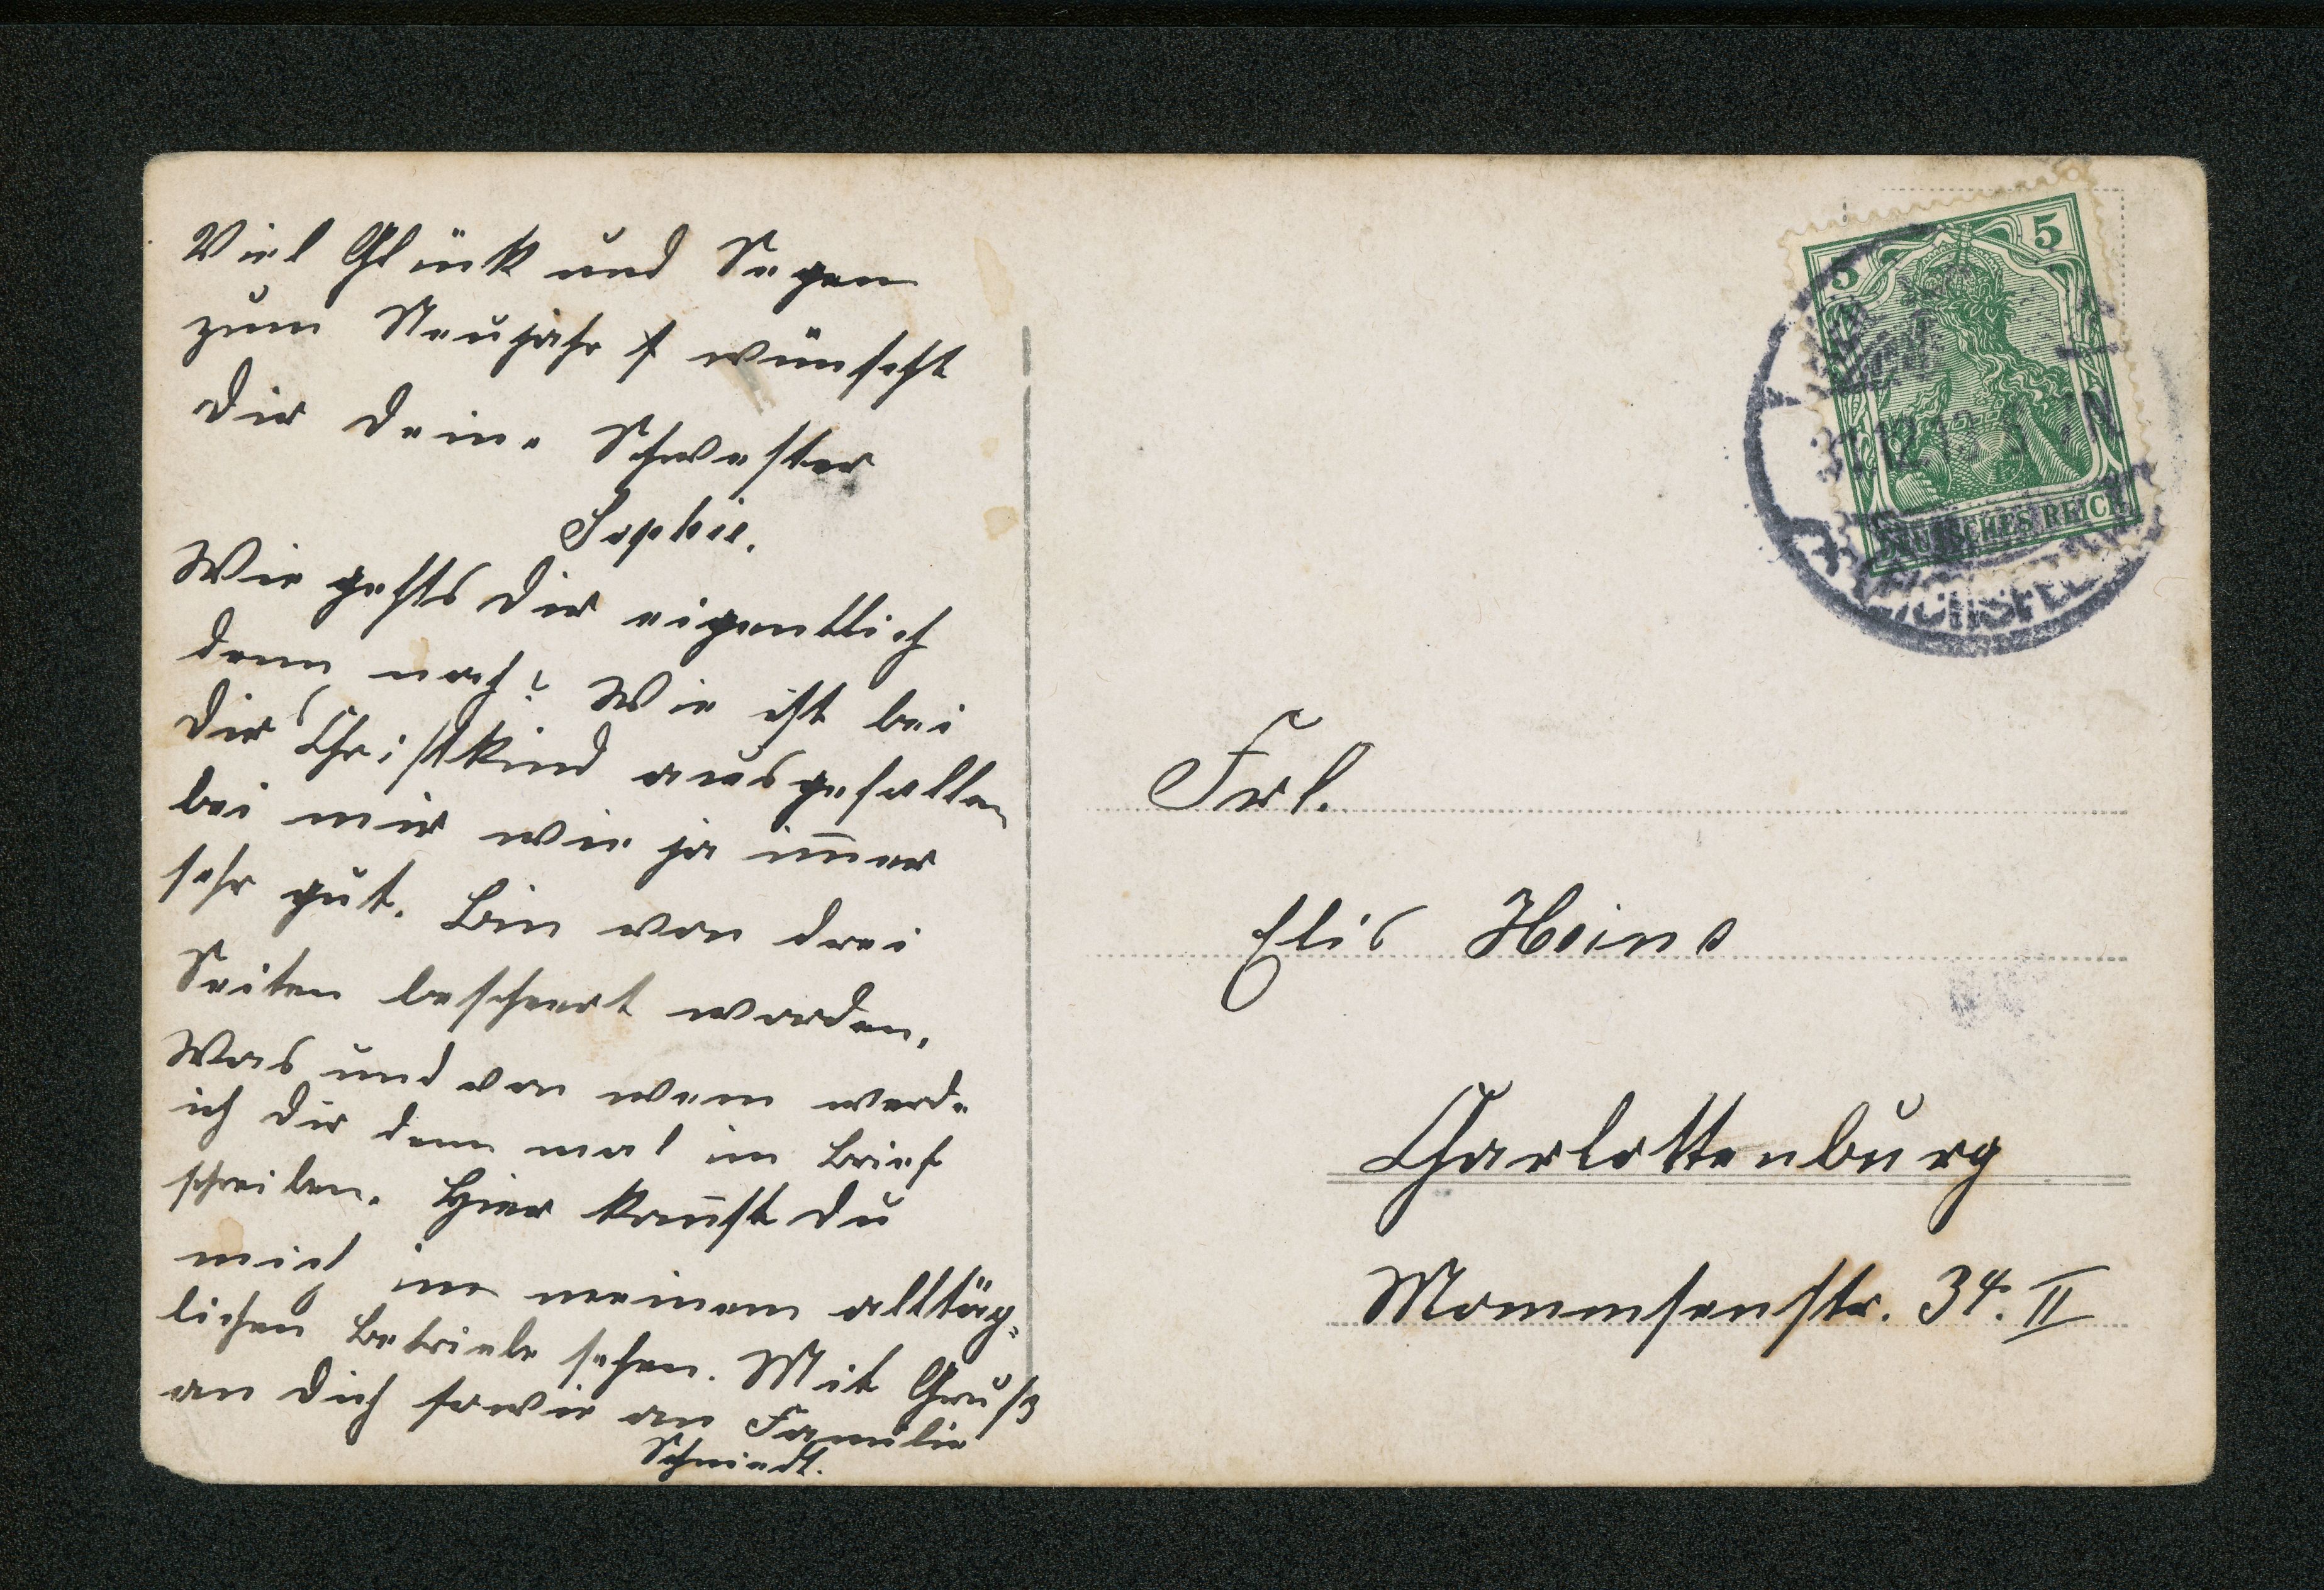 Viel Glück und Segen
zum Neujahr wünscht
Dir Deine Schwester
Sophie.
Wie gehts Dir eigentlich
denn noch? Wie ist bei
Dir Christkind ausgefallen
bei mir wie ja im̅er
sehr gut. Bin von drei
Seiten bescheert worden.
Was und von wem werde
ich Dir denn mal im Brief
schreiben. Hier kan̅st Du
mich in meinem alltäg-
lichen Betriebe sehen. Mit Gruß
an Dich sowie an Familie
Schmidt.
5 5
31.12.13
DEUTSCHES REICH
Frl.
Elis Heins
Charlottenburg
Mommsenstr. 34. II